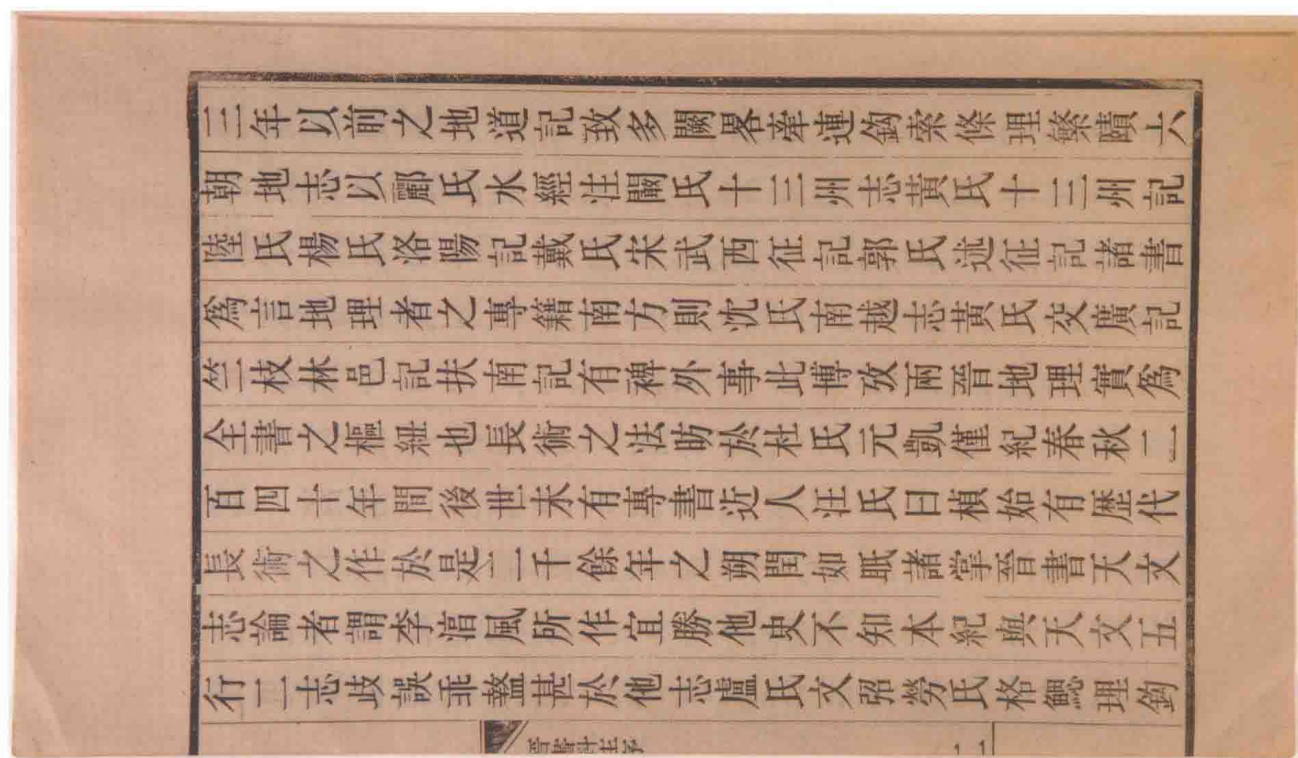 三年以前之地道記致多闕畧牽連鈎索條理繁賾六
朝地志以酈氏水經注闞氏十三州志黃氏十三州記
陸氏楊氏洛陽記戴氏宋武西征記郭氏述征記諸書
爲言地理者之專籍南方則沈氏南越志黃氏交廣記
竺枝林邑記扶南記有裨外事此博攷兩晉地理實爲
全書之樞紐也長術之法昉於杜氏元凱僅紀春秋二
百四十年間後世未有專書近人汪氏曰楨始有歷代
長術之作於是二千餘年之朔閏如眡諸掌晉書天文
志論者謂李淳風所作宜勝他史不知本紀與天文五
行二志歧誤乖盭甚於他志盧氏文弨勞氏格鰓理鈎